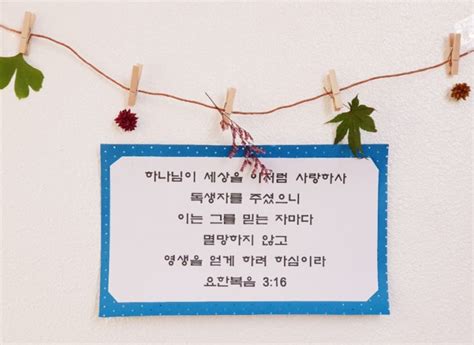 하나님이 세상을 이처럼 사랑하사
독생자를 주셨으니
이는 그를 믿는 자마다
멸망하지 않고
영생을 얻게 하려 하심이라
요한복음 3:16